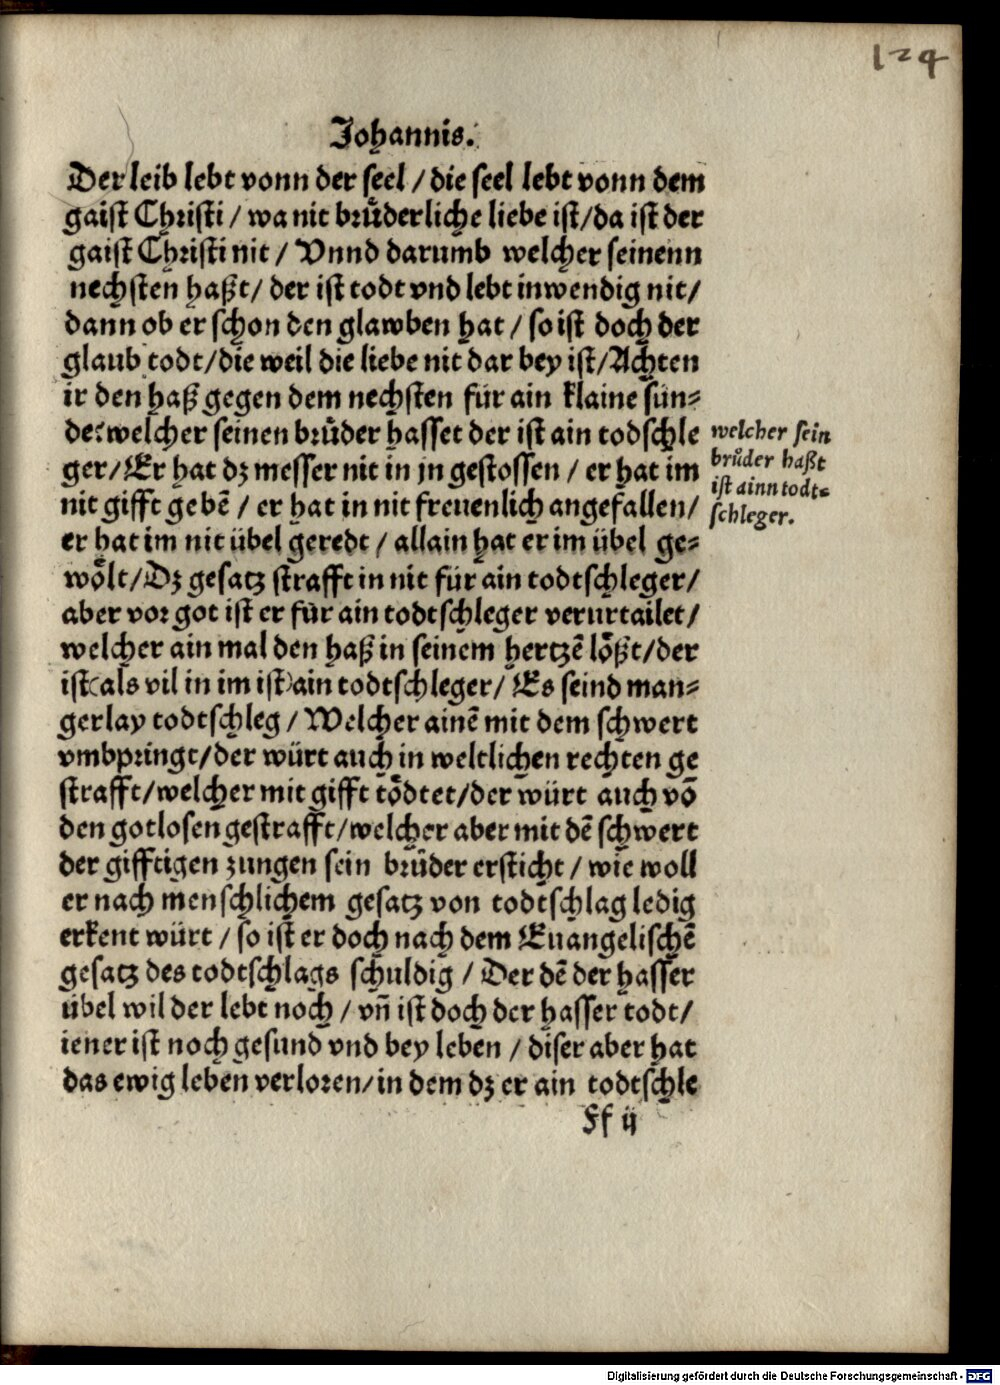 124
Johannis.
Der leib lebt vonn der seel / die seel lebt vonn dem
gaist Christi / wa nit brůderliche liebe ist / da ist der
gaist Christi nit / Vnnd darumb welcher seinenn
nechsten haßt / der ist todt vnd lebt inwendig nit /
dann ob er schon den glawben hat / so ist doch der
glaub todt / die weil die liebe nit dar bey ist / Achten
ir den haß gegen dem nechsten für ain klaine sün⸗
de? welcher seinen brůder hasset der ist ain todschle
ger / Er hat dz messer nit in jn gestossen / er hat im
nit gifft gebē / er hat in nit freuenlich angefallen /
er hat im nit übel geredt / allain hat er im übel ge⸗
wölt / Dz gesatz strafft in nit für ain todtschleger /
aber vor got ist er für ain todtschleger verurtailet /
welcher ain mal den haß in seinem hertzē lößt / der
ist (als vil in im ist) ain todtschleger / Es seind man⸗
gerlay todtschleg / Welcher ainē mit dem schwert
vmbpringt / der würt auch in weltlichen rechten ge
strafft / welcher mit gifft tödtet / der würt auch vō
den gotlosen gestrafft / welcher aber mit dē schwert
der gifftigen zungen sein brůder ersticht / wie woll
er nach menschlichem gesatz von todtschlag ledig
erkent würt / so ist er doch nach dem Euangelischē
gesatz des todtschlags schuldig / Der dē der hasser
übel wil der lebt noch / vñ ist doch der hasser todt /
iener ist noch gesund vnd bey leben / diser aber hat
das ewig leben verloren / in dem dz er ain todtschle
Ff ij
welcher sein
brůder haßt
ist ainn todt⸗
schleger.
Digitalisierung gefördert durch die Deutsche Forschungsgemeinschaft - DFG